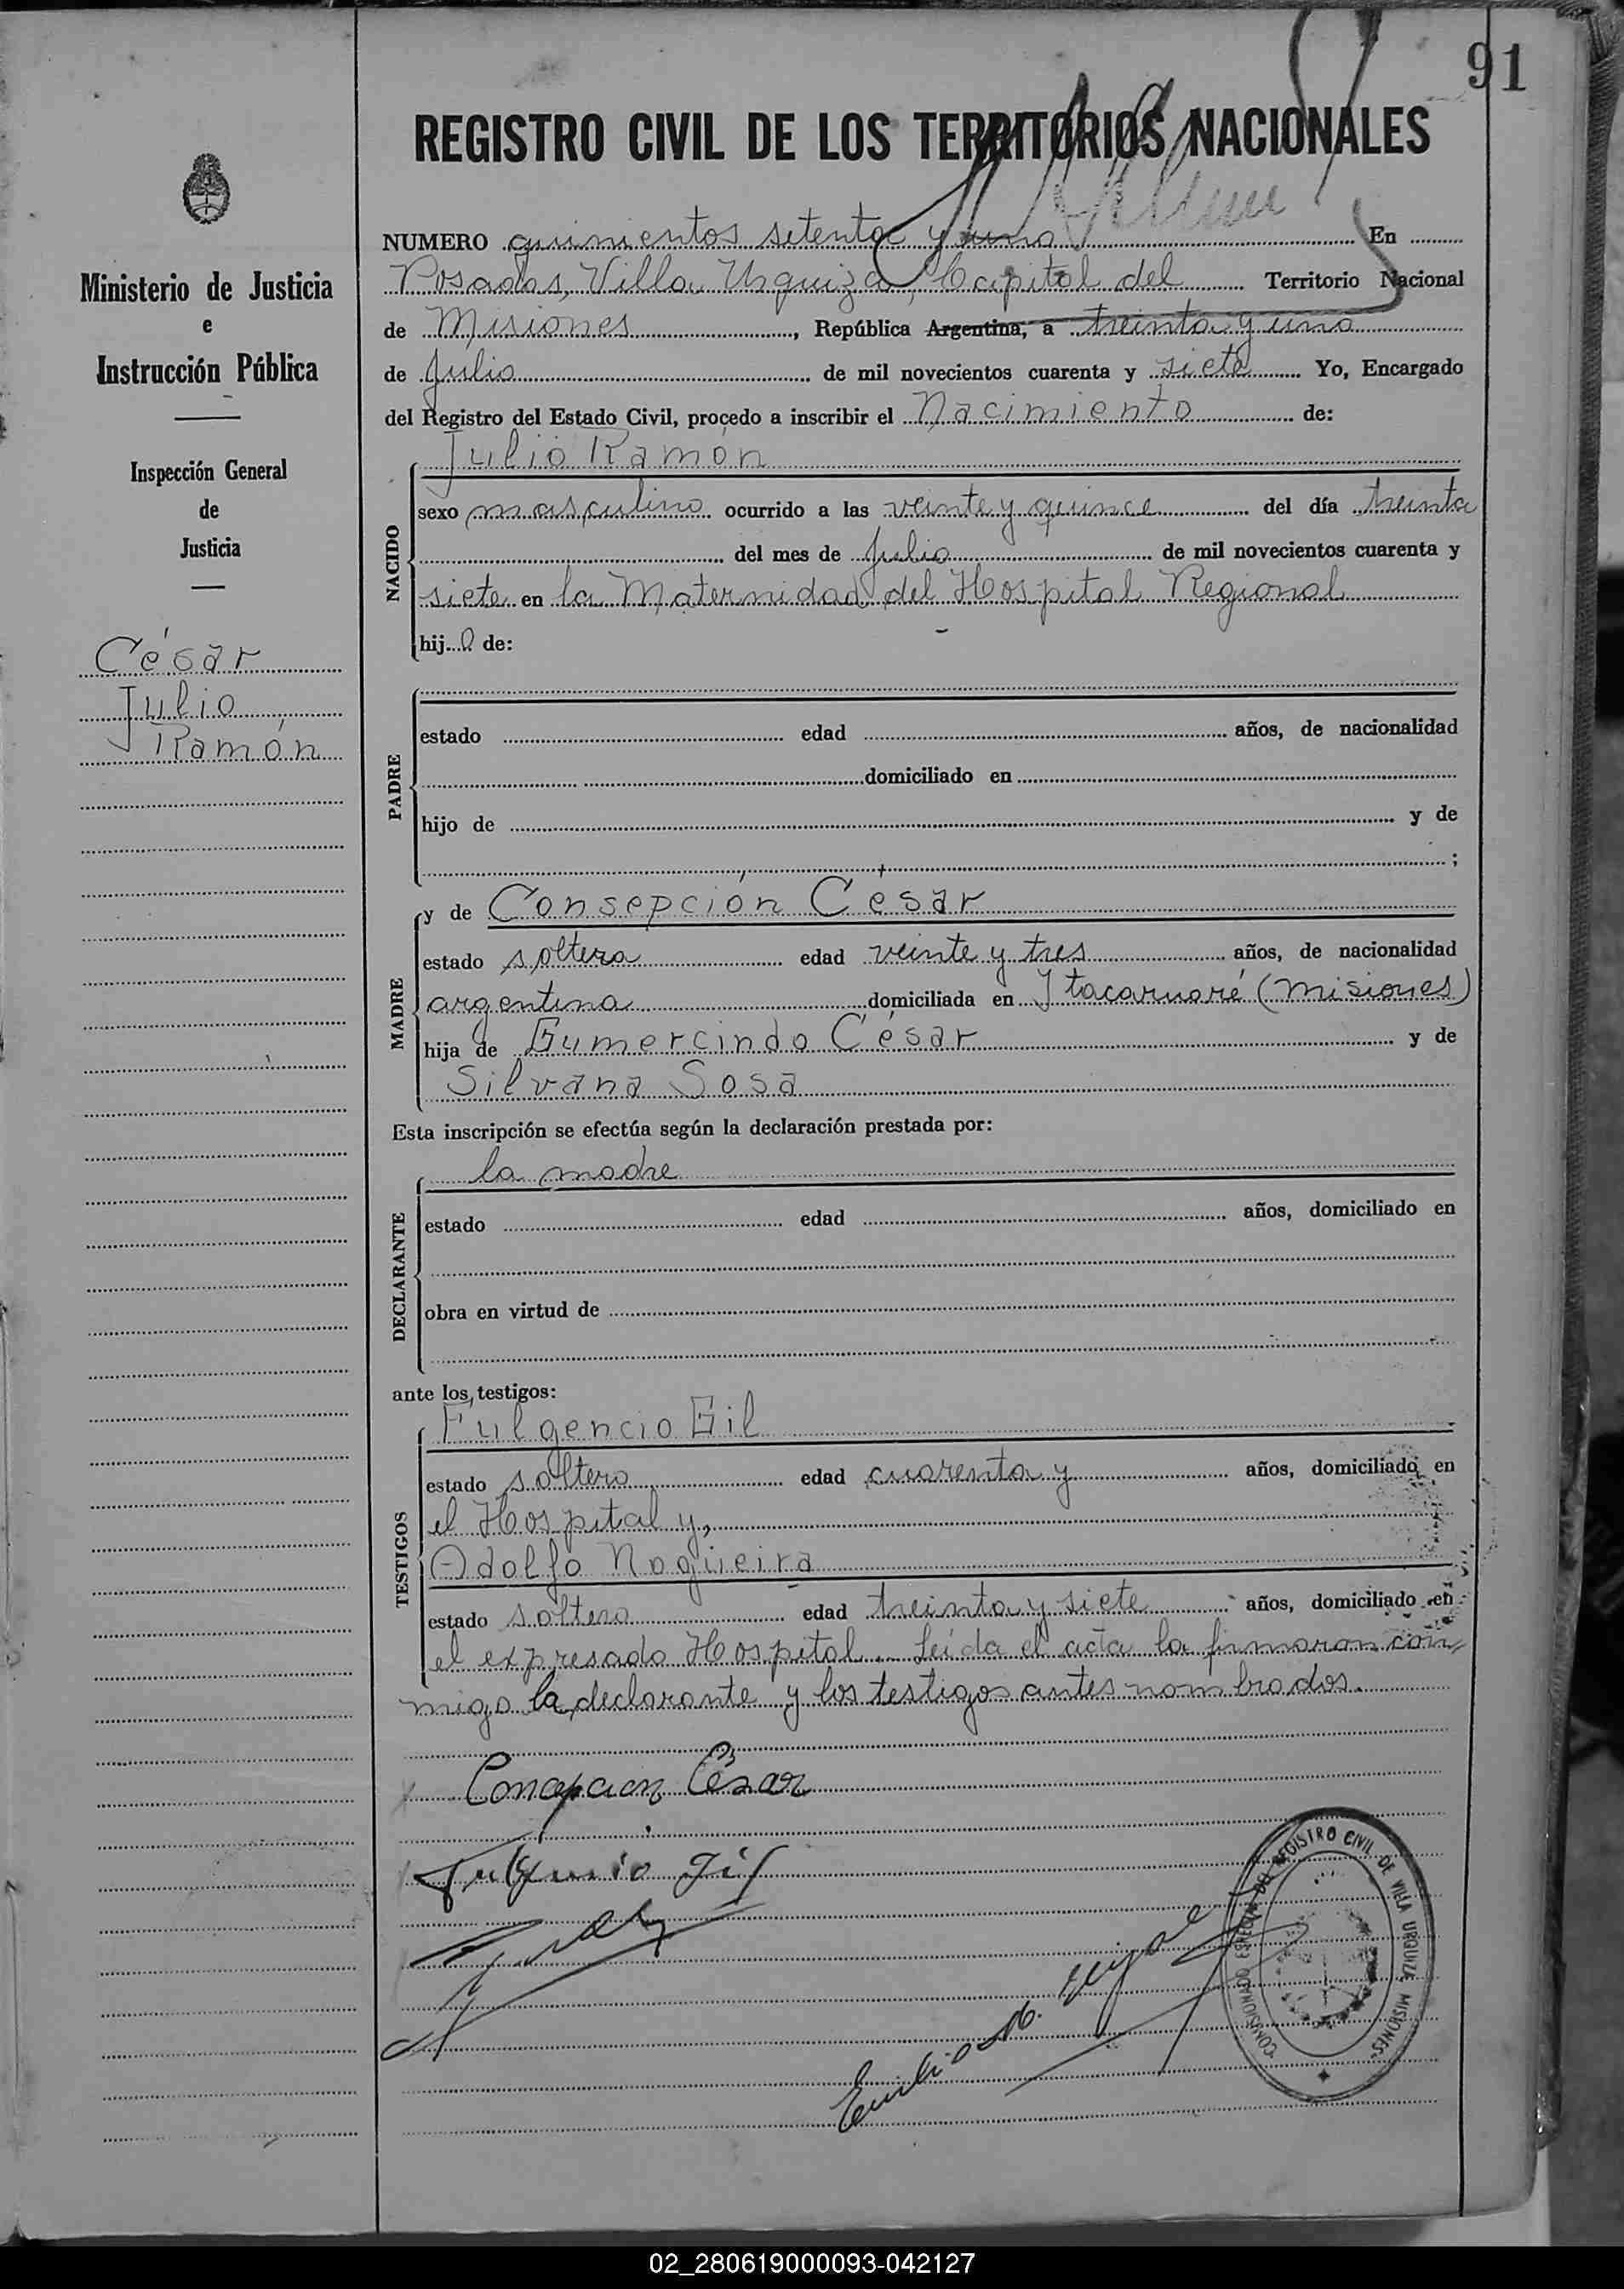 91
REGISTRO CIVIL DE LOS TERRITORIOS NACIONALES
Ministerio de Justicia
e
Instrucción Pública
Inspección General
de
Justicia
César
Julio
Ramón
NUMERO quinientos setenta y uno En
Posadas, Villa Urquiza, Capital del Territorio Nacional
de Misiones, República Argentina, a treinta y uno
de Julio de mil novecientos cuarenta y siete Yo, Encargado
del Registro del Estado Civil, procedo a inscribir el Nacimiento de:
Julio Ramón
NACIDO
sexo masculino ocurrido a las veinte y quince del día treinta
del mes de Julio de mil novecientos cuarenta y
siete en la Maternidad del Hospital Regional
hijo de:
PADRE
estado edad años, de nacionalidad
domiciliado en
hijo de y de
;
MADRE
y de Consepción César
estado soltera edad veinte y tres años, de nacionalidad
argentina domiciliada en Itacaruaré (Misiones)
hija de Gumercindo César y de
Silvana Sosa
Esta inscripción se efectúa según la declaración prestada por:
la madre
DECLARANTE
estado edad años, domiciliado en
obra en virtud de
ante los testigos:
Fulgencio Gil
TESTIGOS
estado soltero edad cuarenta y años, domiciliado en
el Hospital y,
Adolfo Nogüeira
estado soltero edad treinta y siete años, domiciliado en
el expresado Hospital. Leída el acta la firmaron con
migo la declarante y los testigos antes nombrados.
Concepción César
Fulgencio Gil
Emilio
COMISIONADO ESPECIAL DEL REGISTRO CIVIL DE VILLA URQUIZA MISIONES
02_280619000093-042127